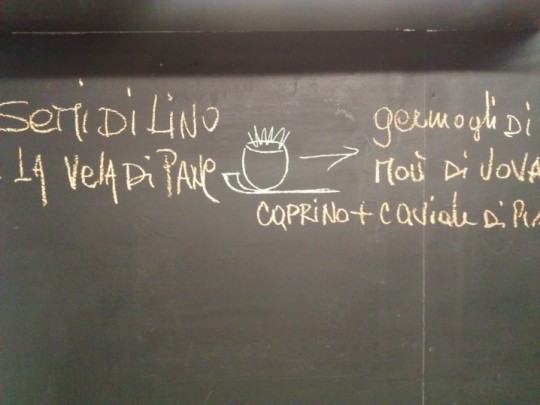 SEMI DI LINO germogli DI
LA VELA DI PANE MOÙ DI UOVA
CAPRINO + CAVIALE DI